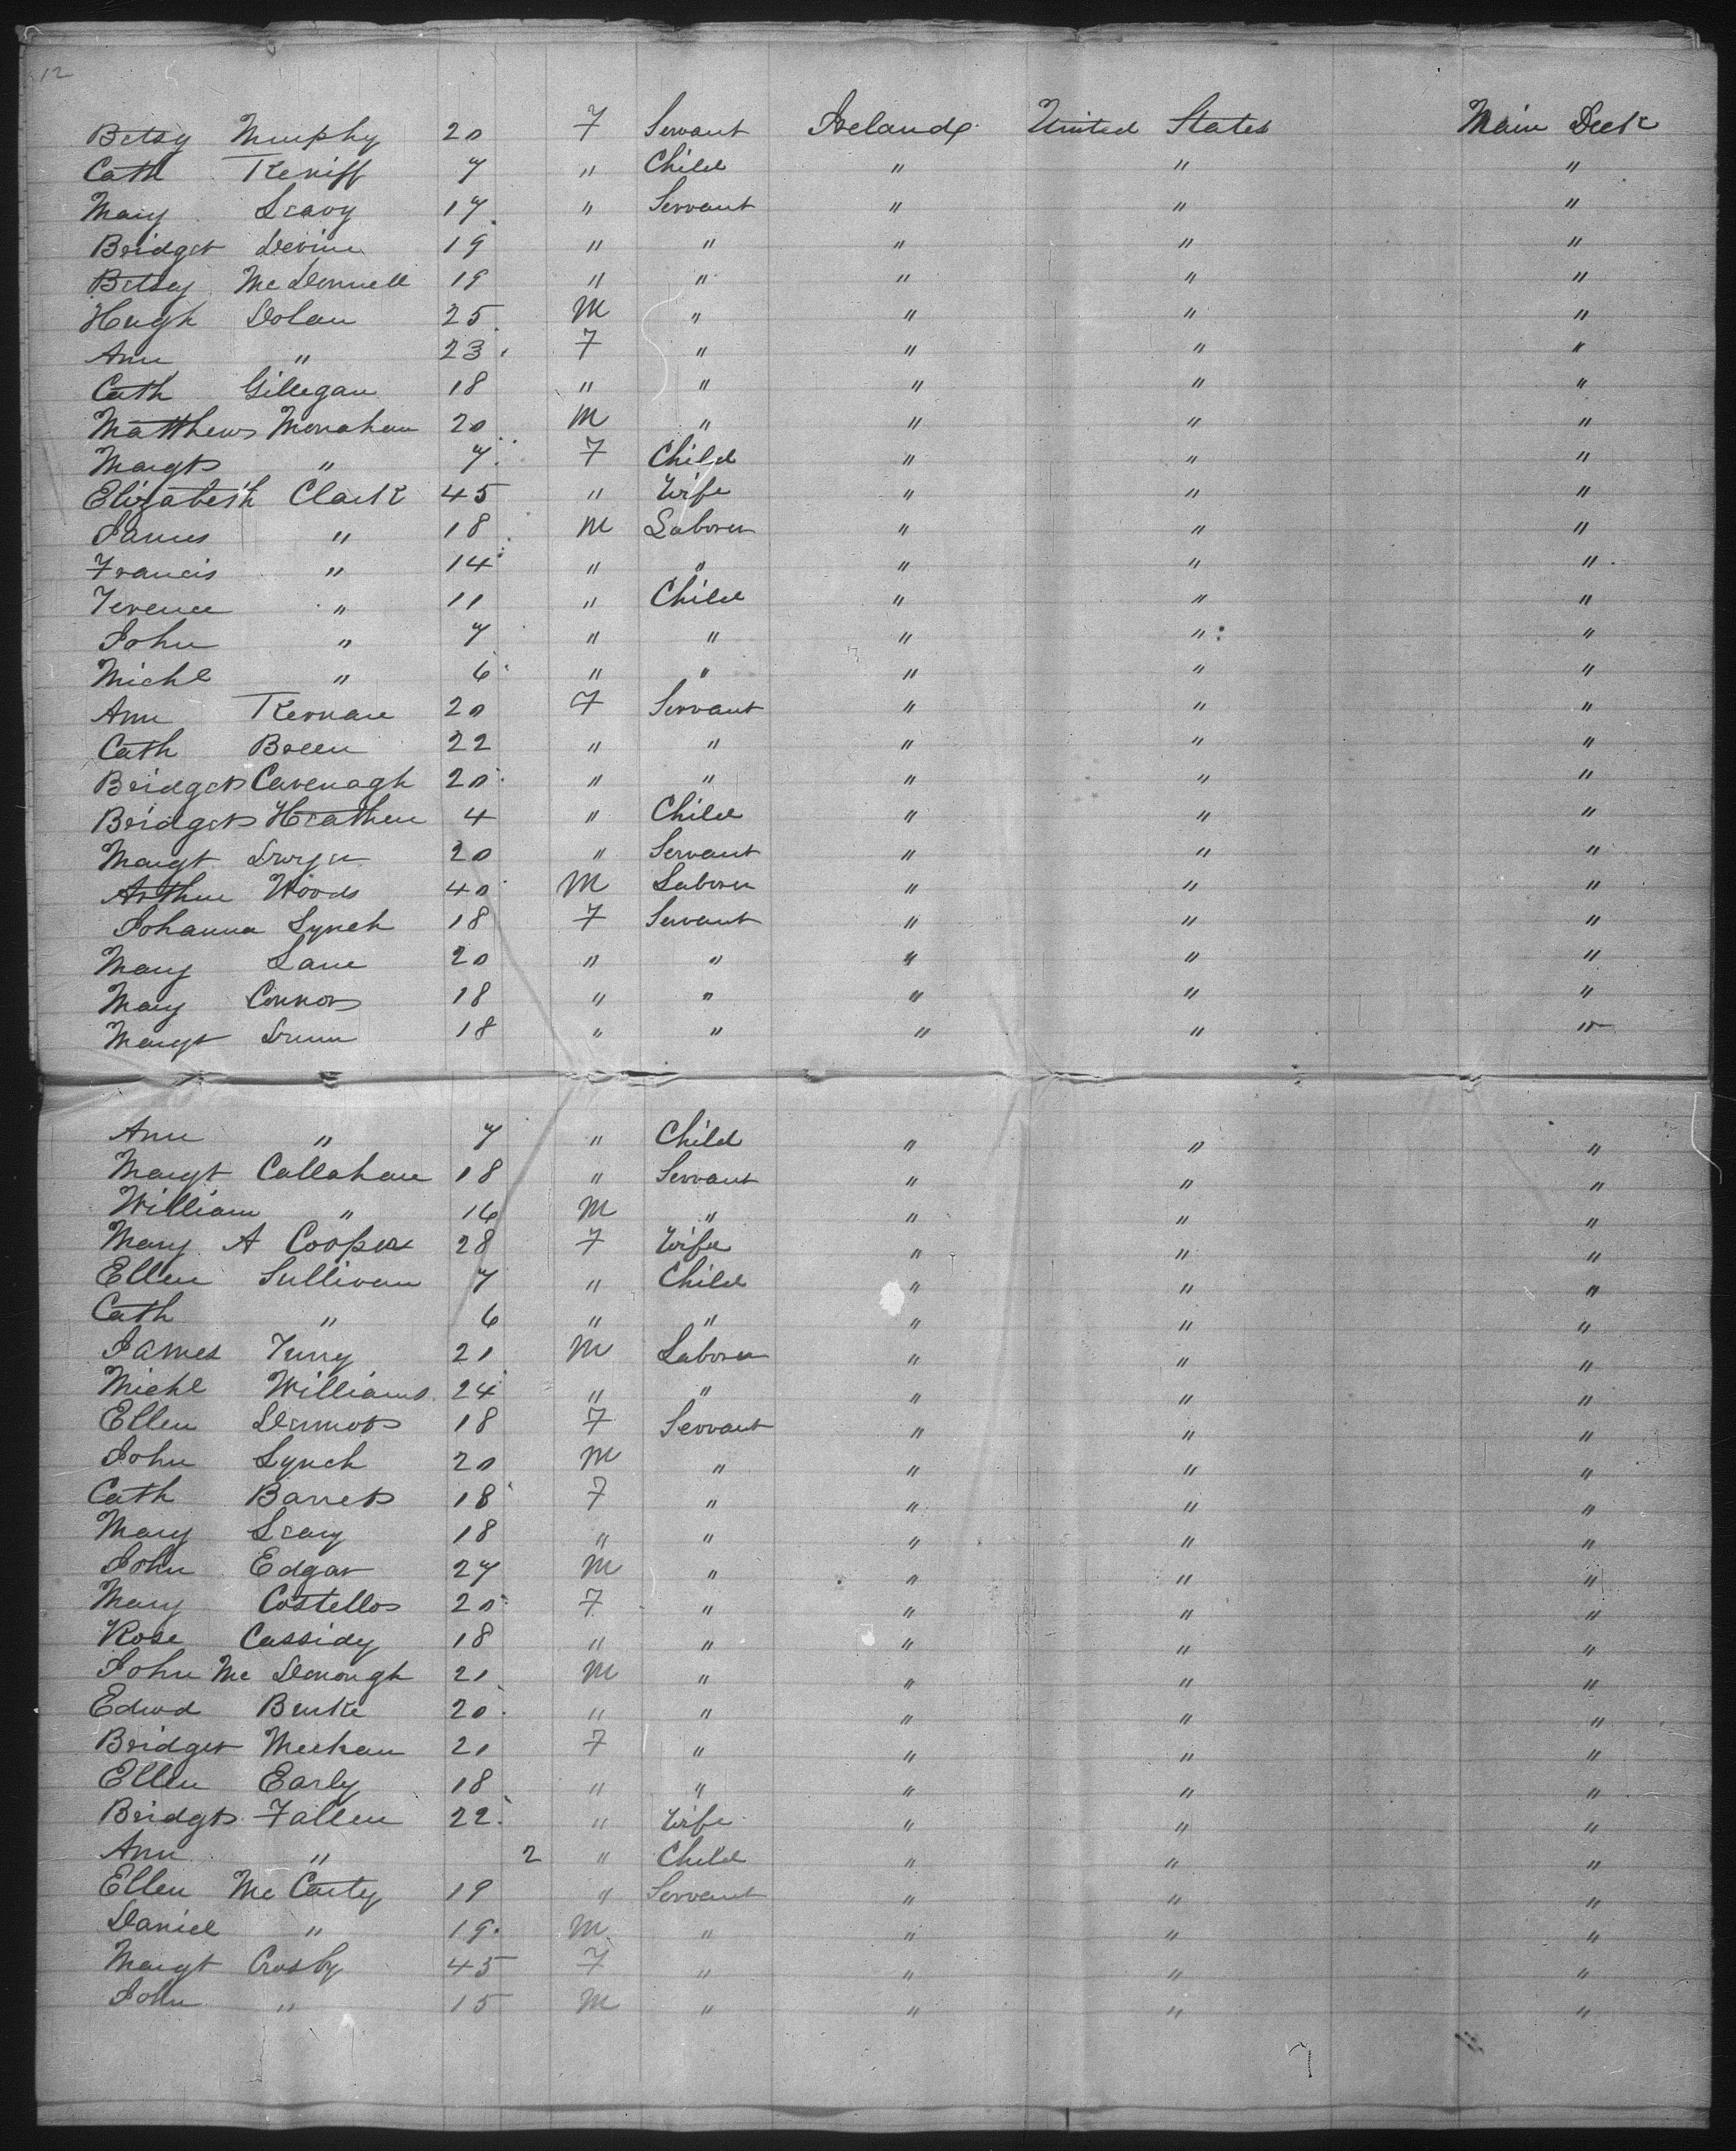 12
Betsy Murphy 20 F Servant Ireland United States Main Deck
Cath Keniff 7 " Child " " "
Mary Leavy 17 " Servant " " "
Bridget Devine 19 " " " " "
Betsy McDonnell 19 " " " " "
Hugh Dolan 25 M " " " "
Ann " 23 F " " " "
Cath Gillegan 18 " " " " "
Matthew Monahan 20 M " " " "
Margt " 7 F Child " " "
Elizabeth Clark 45 " Wife " " "
James " 18 M Laborer " " "
Francis " 14 " " " " "
Terence " 11 " Child " " "
John " 7 " " " " "
Michl " 6 " " " " "
Ann Kernan 20 F Servant " " "
Cath Breen 22 " " " " "
Bridget Cavenagh 20 " " " " "
Bridget Heathen 4 " Child " " "
Margt Dwyer 20 " Servant " " "
Arthur Woods 40 M Laborer " " "
Johanna Lynch 18 F Servant " " "
Mary Lane 20 " " " " "
Mary Connors 18 " " " " "
Margt Dunn 18 " " " " "
Ann " 7 " Child " " "
Margt Callahan 18 " Servant " " "
William " 16 M " " " "
Mary A Cooper 28 F Wife " " "
Ellen Sullivan 7 " Child " " "
Cath " 6 " " " " "
James 21 M Laborer " " "
Michl Williams 24 " " " " "
Ellen Dermott 18 F Servant " " "
John Lynch 20 M " " " "
Cath Barrett 18 F " " " "
Mary Leavy 18 " " " " "
John Edgar 27 M " " " "
Mary Costello 20 F " " " "
Rose Cassidy 18 " " " " "
John McDonough 21 M " " " "
Edwd Burke 20 " " " " "
Bridget Meehan 21 F " " " "
Ellen Early 18 " " " " "
Bridgt Fallen 22 " Wife " " "
Ann " 2 " Child " " "
Ellen McCarty 19 " Servant " " "
Daniel " 19 M " " " "
Margt Crosby 45 F " " " "
John " 15 M " " " "